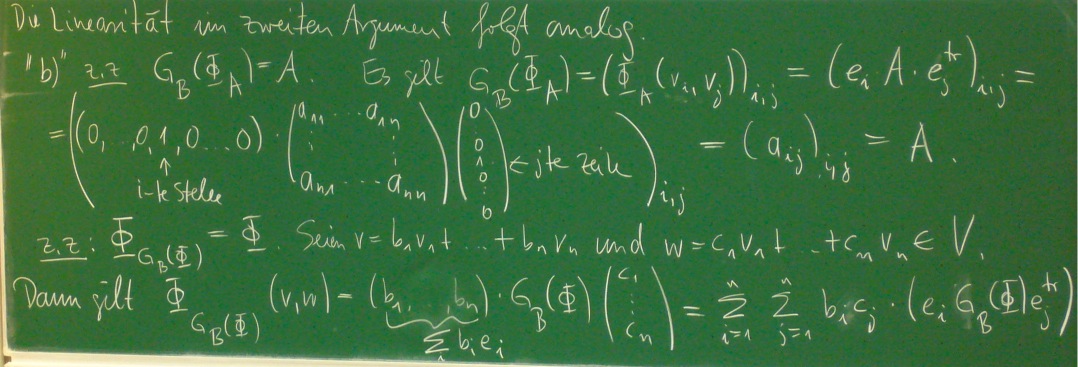 Die Linearität im zweiten Argument folgt analog.
"b)" z.z G_B(Φ_A) = A. Es gilt G_B(Φ_A) = (Φ_A(v_i, v_j))_{i,j} = (e_i A · e_j^{tr})_{i,j} =
= ((0, ... ,0,1,0 ... 0) · (a_{11} ... a_{1n} ⋮ ⋮ a_{n1} ... a_{nn}) (0 ⋮ 0 1 0 ⋮ 0) ← jte Zeile)_{i,j} = (a_{ij})_{i,j} = A.
↑
i-te Stelle
z.z: Φ_{G_B(Φ)} = Φ. Seien v = b_1 v_1 + ... + b_n v_n und w = c_1 v_1 + ... + c_n v_n ∈ V.
Dann gilt Φ_{G_B(Φ)} (v,w) = (b_1, ... , b_n) · G_B(Φ) (c_1 ⋮ c_n) = ∑_{i=1}^{n} ∑_{j=1}^{n} b_i c_j · (e_i G_B(Φ) e_j^{tr})
∑_i b_i e_i